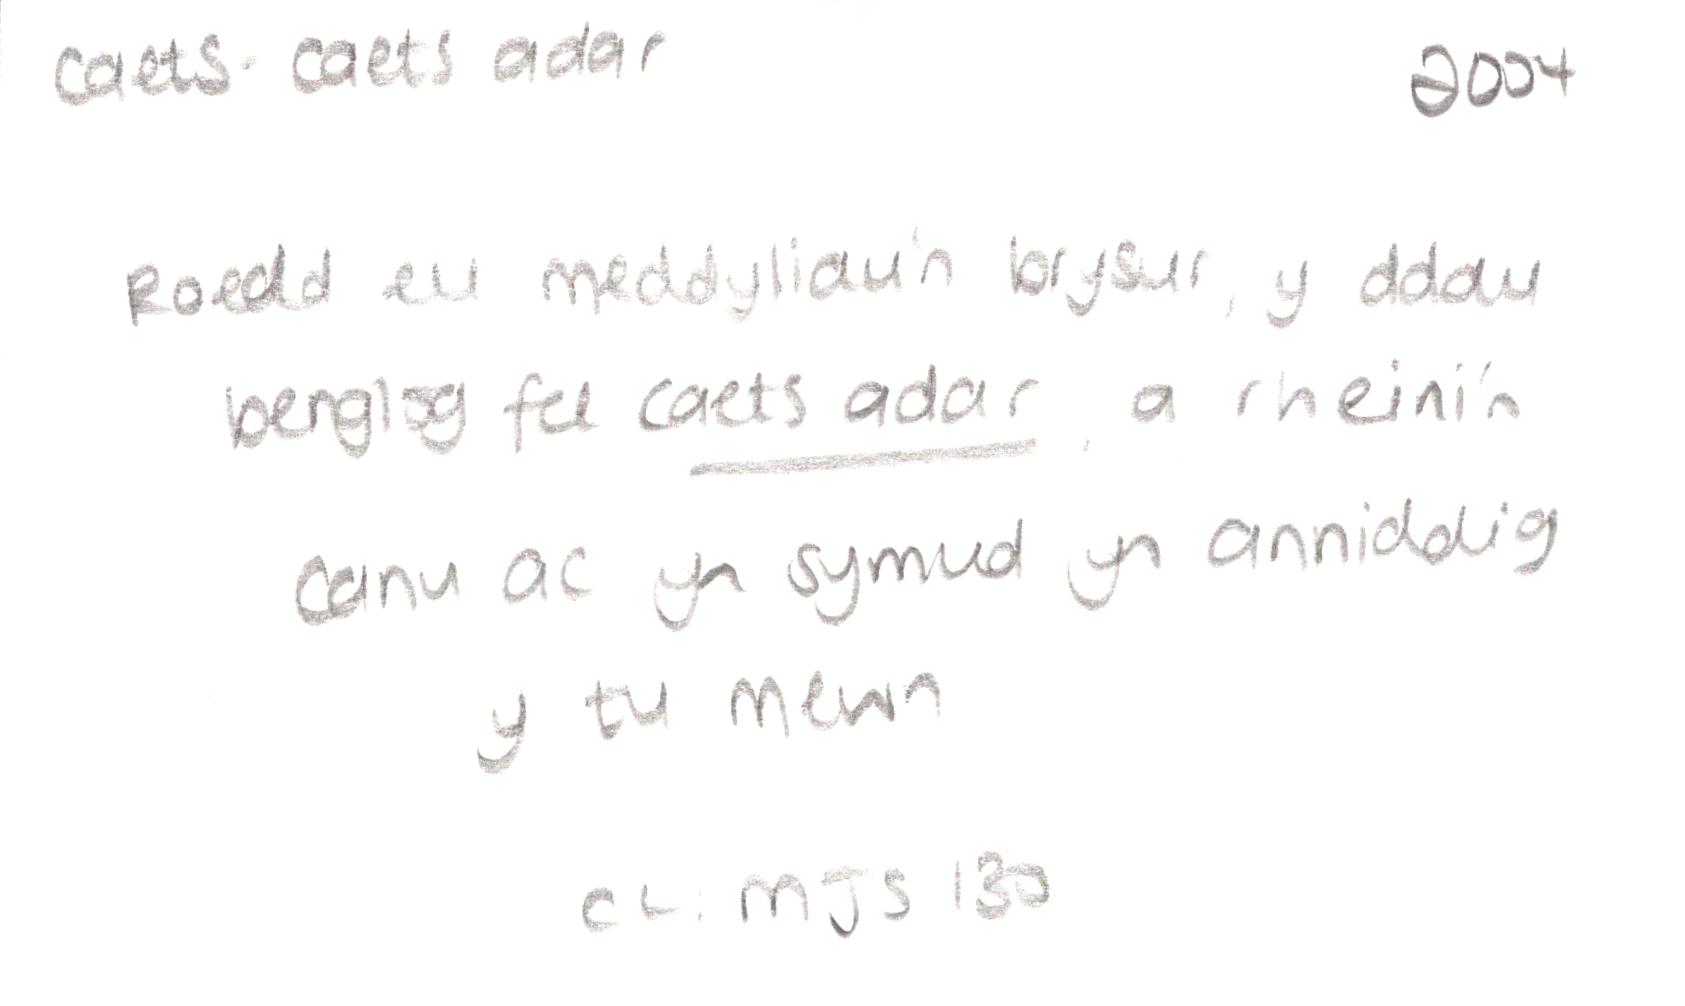 caets. caets adar 2004
Roedd eu meddyliau'n brysur, y ddau
benglog fel caets adar, a rheini'n
canu ac yn symud yn anniddig
y tu mewn
CL: MJS 130